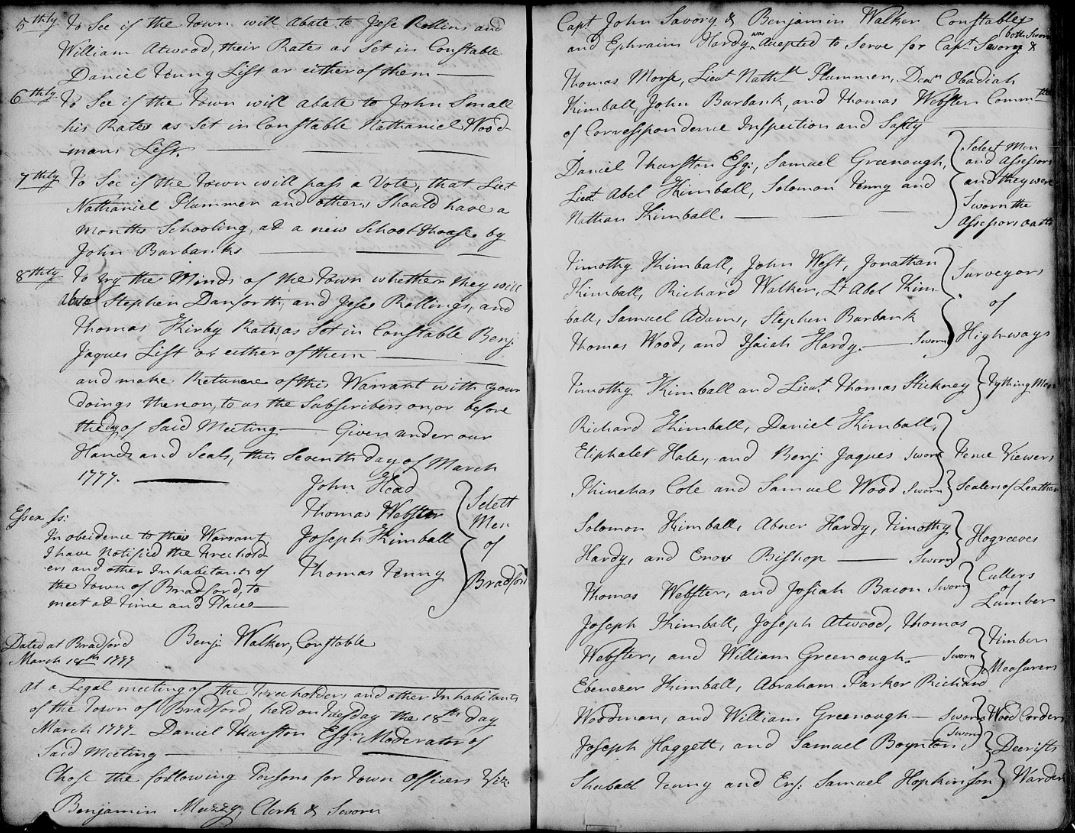 5thly To See if the Town will abate to Jese Rollins and
William Atwood, their Rates as Set in Constable
Daniel Tenny List or either of them
6thly To See if the Town will abate to John Small
his Rates as Set in Constable Nathaniel Wood-
mans List,
7thly To See if the Town will pass a Vote, that Liet
Nathaniel Plummer and others Should have a
months Schooling, at a new School House, by
John Burbanks
8thly To try the Minds of the Town whether they will
abate Stephen Danforth, and Jese Rollings, and
Thomas Kirby Rates, as Set in Constable Benj
Jaques List or either of them
and make Return of this Warrant with your
doings thereon, to us the Subscribers on, or before
the day of Said Meeting Given under our
Hands and Seals, this Seventh day of March
1777.
John Head
Thomas Webster
Joseph Kimball
Thomas Tenny
Selett
Men
of
Bradford
Essex Ss:
In obeidence to this Warrant
I have Notified the Freehold-
ers and other Inhabitants of
the Town of Bradford, to
meet at Time and Place
Benj Walker, Constable
Dated at Bradford
March 18th 1777
At a Legal meeting of the Freeholders and other Inhabitants
of the Town of Bradford held on Tuesday the 18th day
March 1777 Daniel Thurston Esqr Moderator of
Said Meeting
Chose the following Persons for Town Officers Viz
Benjamin Muzzy, Clerk & Sworn
Capt John Savory & Benjamin Walker Constables
both Sworn
and Ephraim Hardy was Axepted to Serve for Capt Savory &
Thomas Morse, Lieut Nathll Plummer, Dean Obadiah
Kimball, John Burbank, and Thomas Webster Commtee
of Corresspondence Inspection and Safty
Daniel Thurston Esq:, Samuel Greenough,
Liet Abel Kimball, Solomon Tenny and
Nathan Kimball.
Select Men
and Assessors
and they were
Sworn the
Assessors oath
Timothy Kimball, John West, Jonathan
Kimball, Richard Walker, Lt Abel Kim
ball, Samuel Adams, Stephen Burbank
Thomas Wood, and Isaiah Hardy. Sworn
Surveyors
of
Highways
Timothy Kimball and Lieut Thomas Stickney Tything Men
Richard Kimball, Daniel Kimball,
Eliphalet Hale, and Benj Jaques Sworn Fence Viewers
Phinehas Cole and Samuel Wood Sworn Sealers of Leather
Solomon Kimball, Abner Hardy, Timothy
Hardy, and Enos Bishop Sworn Hogreeves
Thomas Webster, and Josiah Bacon Sworn Cullers of Lumber
Joseph Kimball, Joseph Atwood, Thomas
Webster, and William Greenough Sworn Timber Measurers
Ebenezer Kimball, Abraham Parker Richard
Woodman, and William Greenough Sworn Wood Corders
Joseph Haggett, and Samuel Boynton Sworn Deerifts
Shuball Tenny and Ens: Samuel Hopkinson Warden